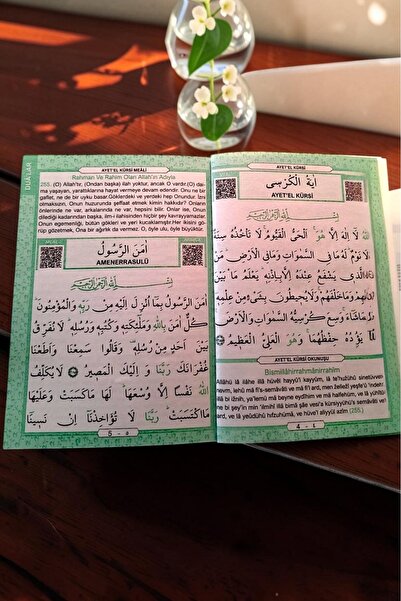 AYET'EL KÜRSİ
آيَةُ الْكُرْسِى
AYET'EL KÜRSİ
اَللّٰهُ لَٓا اِلٰهَ اِلَّا هُوَ اَلْحَىُّ الْقَيُّومُ لَا تَأْخُذُهُ سِنَةٌ
لَا نَوْمٌ لَهُ مَا فِى السَّمٰوَاتِ وَمَا فِى الْاَرْضِ مَنْ
الَّذِى يَشْفَعُ عِنْدَهُٓ اِلَّا بِاِذْنِهِ يَعْلَمُ مَا بَيْنَ
وَمَاخَلْفَهُمْ وَلَايُحِيطُونَ بِشَىْءٍ مِنْ عِلْمِهِٓ
شَٓاءَ وَسِعَ كُرْسِيُّهُ السَّمٰوَاتِ وَالْاَرْضَ
يَؤُدُهُ حِفْظُهُمَا وَهُوَ الْعَلِىُّ الْعَظِيمُ
AYET'EL KÜRSİ OKUNUŞU
Bismillâhirrahmânirrahîm
Allâhü lâ ilâhe illâ hüvel hayyü'l kayyûm, lâ te'huzühû sinetüvven
nevm, lehû mâ fi's-semâvâti ve mâ fi'l ard, men zellezî yeşfe'û 'indehû
illâ bi iznih, ya'lemü mâ beyne eydîhim ve mâ halfehüm, ve lâ yühîtû-
ne bi şey'in min 'ilmihî illâ bimâ şâe vesi'a kürsiyyühü's-semâvâti ve'l
ard, ve lâ yeûdühû hıfzuhümâ, ve hüve'l aliyyül azîm (255.)
4 - ٤
DUALAR
AYET'EL KÜRSİ MEÂLİ
Rahman Ve Rahim Olan Allah'ın Adıyla
255. (O) Allah'tır, (Ondan başka) ilah yoktur, ancak O vardır.(O) dai-
ma yaşayan, yaratıklarına hayat vermeye devam edendir. Onu ne bir
gaflet, ne de bir uyku basar.Göklerdeki ve yerdeki hep Onundur. İzni
olmaksızın, Onun huzurunda şefaat etmek kimin hakkıdır? Onların
önlerinde ne var, arkalarında ne var, hepsini bilir. Onlar ise, Onun
dilediği kadarından başka, ilm-i ilahisinden hiçbir şey kavrayamazlar.
Onun egemenliği, bütün gökleri ve yeri kucaklamıştır.Her ikisini gö-
rüp gözetmek, Ona bir ağırlık da vermez. O, öyle ulu, öyle büyüktür.
اٰمَنَ الرَّسُولُ
AMENERRASULÜ
اٰمَنَ الرَّسُولُ بِمَٓا اُنْزِلَ اِلَيْهِ مِنْ رَبِّهِ وَالْمُؤْمِنُونَ
كُلٌّ اٰمَنَ بِاللّٰهِ وَمَلٰٓئِكَتِهِ وَكُتُبِهِ وَرُسُلِهِ لَا نُفَرِّقُ
بَيْنَ اَحَدٍ مِنْ رُسُلِهِ وَقَالُوا سَمِعْنَا وَاَطَعْنَا
غُفْرَانَكَ رَبَّنَا وَ اِلَيْكَ الْمَصِيرُ لَا يُكَلِّفُ
اللّٰهُ نَفْسًا اِلَّا وُسْعَهَا لَهَا مَاكَسَبَتْ وَعَلَيْهَا
مَااكْتَسَبَتْ رَبَّنَا لَا تُؤَاخِذْنَٓا اِنْ نَسِينَٓا
5 - ٥